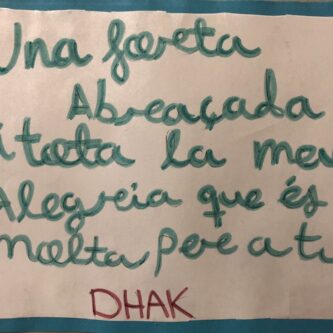 Una foreta
Abreaçada
i tota la meu
Alegreia que és
molta pere a tu
DHAK